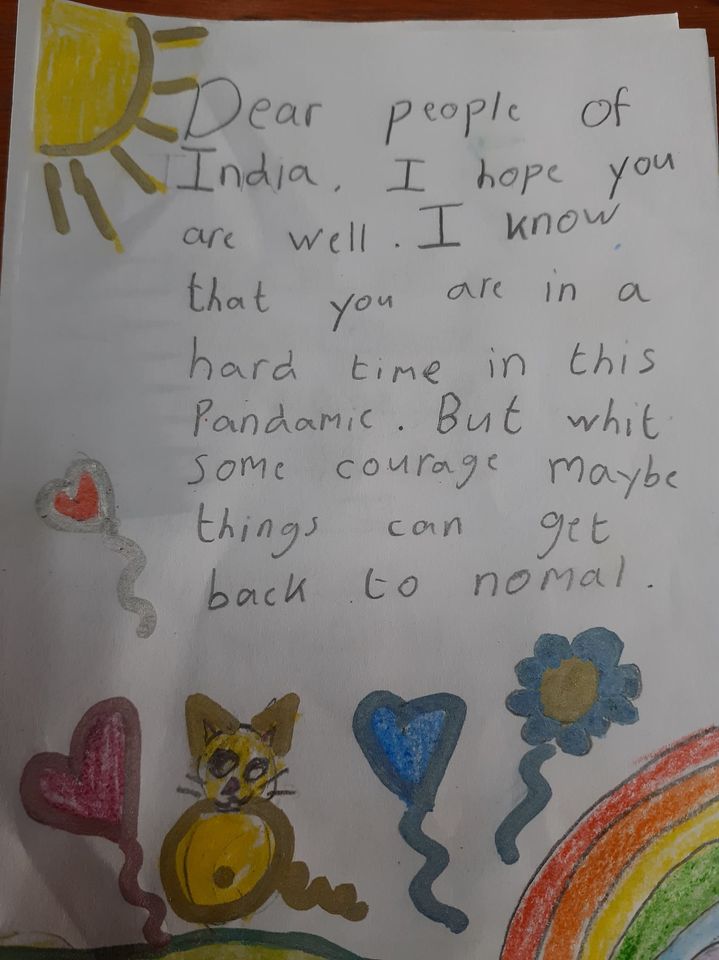 Dear people of
India. I hope you
are well. I know
that you are in a
hard time in this
Pandamic. But whit
some courage maybe
things can get
back to nomal.